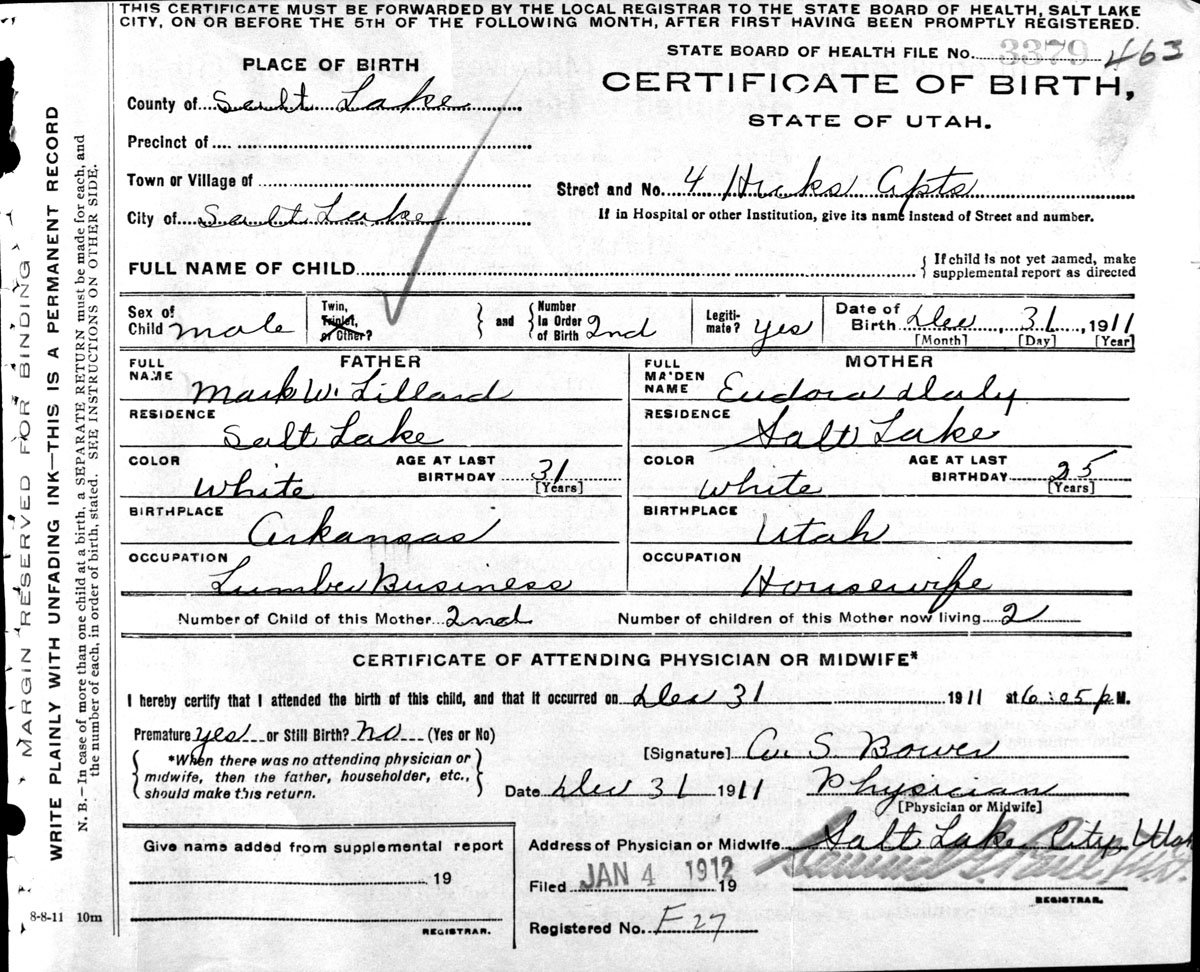 THIS CERTIFICATE MUST BE FORWARDED BY THE LOCAL REGISTRAR TO THE STATE BOARD OF HEALTH, SALT LAKE
CITY, ON OR BEFORE THE 5TH OF THE FOLLOWING MONTH, AFTER FIRST HAVING BEEN PROMPTLY REGISTERED.
STATE BOARD OF HEALTH FILE No. 3379 463
PLACE OF BIRTH
CERTIFICATE OF BIRTH,
STATE OF UTAH.
County of Salt Lake
Precinct of
Town or Village of
Street and No. 4 Hicks Apts
City of Salt Lake
If in Hospital or other Institution, give its name instead of Street and number.
FULL NAME OF CHILD
{ If child is not yet named, make
supplemental report as directed
Sex of Child male
Twin, Triplet, or Other? } and { Number in Order of Birth 2nd
Legitimate? yes
Date of Birth Dec, 31, 1911
[Month] [Day] [Year]
FATHER
FULL NAME Mark W. Lillard
RESIDENCE Salt Lake
COLOR White
AGE AT LAST BIRTHDAY 31 [Years]
BIRTHPLACE Arkansas
OCCUPATION Lumber Business
MOTHER
FULL MAIDEN NAME Eudora Daly
RESIDENCE Salt Lake
COLOR White
AGE AT LAST BIRTHDAY 25 [Years]
BIRTHPLACE Utah
OCCUPATION Housewife
Number of Child of this Mother 2nd Number of children of this Mother now living 2
CERTIFICATE OF ATTENDING PHYSICIAN OR MIDWIFE*
I hereby certify that I attended the birth of this child, and that it occurred on Dec 31 1911 at 6:05 P M.
Premature yes or Still Birth? No (Yes or No)
{ *When there was no attending physician or
midwife, then the father, householder, etc.,
should make this return. }
[Signature] S Bower
Date Dec 31 1911 Physician
[Physician or Midwife]
Give name added from supplemental report
19
REGISTRAR.
Address of Physician or Midwife Salt Lake City, Utah
Filed JAN 4 1912 19
REGISTRAR.
Registered No. F 27
8-8-11 10m
MARGIN RESERVED FOR BINDING
WRITE PLAINLY WITH UNFADING INK—THIS IS A PERMANENT RECORD
N. B.—In case of more than one child at a birth, a SEPARATE RETURN must be made for each, and
the number of each, in order of birth, stated. SEE INSTRUCTIONS ON OTHER SIDE.